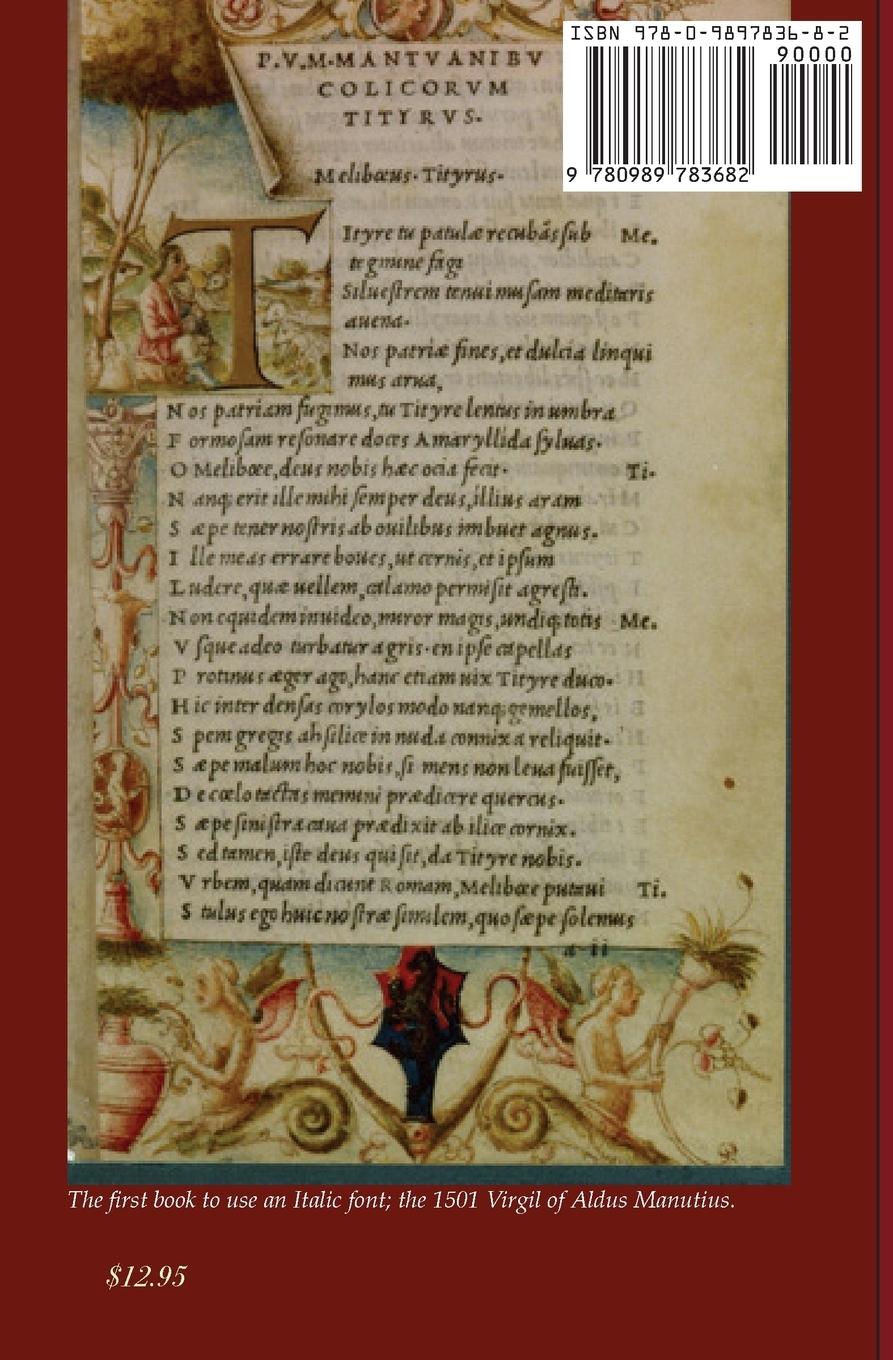 ISBN 978-0-9897836-8-2
90000
9 780989 783682
P.V.M.MANTVANI BV
COLICORVM
TITYRVS.
Melibœus. Tityrus.
TItyre tu patulæ recubãs ſub Me.
tegmine fagi
Silueſtrem tenui muſam meditaris
auena.
Nos patriæ fines, et dulcia linqui
mus arua,
Nos patriam fugimus, tu Tityre lentus in umbra
Formoſam reſonare doces Amaryllida ſyluas.
O Melibœe, deus nobis hæc ocia fecit. Ti.
Nanq; erit ille mihi ſemper deus, illius aram
Sæpe tener noſtris ab ouilibus imbuet agnus.
Ille meas errare boues, ut cernis, et ipſum
Ludere, quæ uellem, calamo permiſit agreſti.
Non equidem inuideo, miror magis, undiq; totis Me.
Vſque adeo turbatur agris. en ipſe capellas
Protinus æger ago, hanc etiam uix Tityre duco.
Hic inter denſas corylos modo nanq; gemellos,
Spem gregis ah ſilice in nuda connixa reliquit.
Sæpe malum hoc nobis, ſi mens non leua fuiſſet,
De cœlo tactas memini prædicere quercus.
Sæpe ſiniſtra caua prædixit ab ilice cornix.
Sed tamen, iſte deus qui ſit, da Tityre nobis.
Vrbem, quam dicunt Romam, Melibœe putaui Ti.
Stulus ego huic noſtræ ſimilem, quo ſæpe ſolemus
a ii
The first book to use an Italic font; the 1501 Virgil of Aldus Manutius.
$12.95